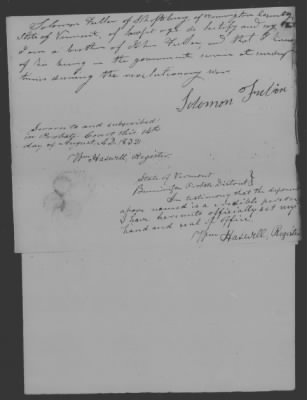 Solomon Fuller of Shaftsbury of Bennington County
State of Vermont, of lawful age do testify and say
I am a brother of John Fuller, and that I knew
of his being in the government service at sundry
times during the revolutionary war
Solomon Fuller
Sworn to and subscribed
in Probate Court this 14th
day of August A.D. 1832
Wm Haswell, Register
State of Vermont }
Bennington Probate District }
In testimony that the deponent
above named is a credible person
I have hereunto officially set my
hand and seal of office.
Wm Haswell, Register